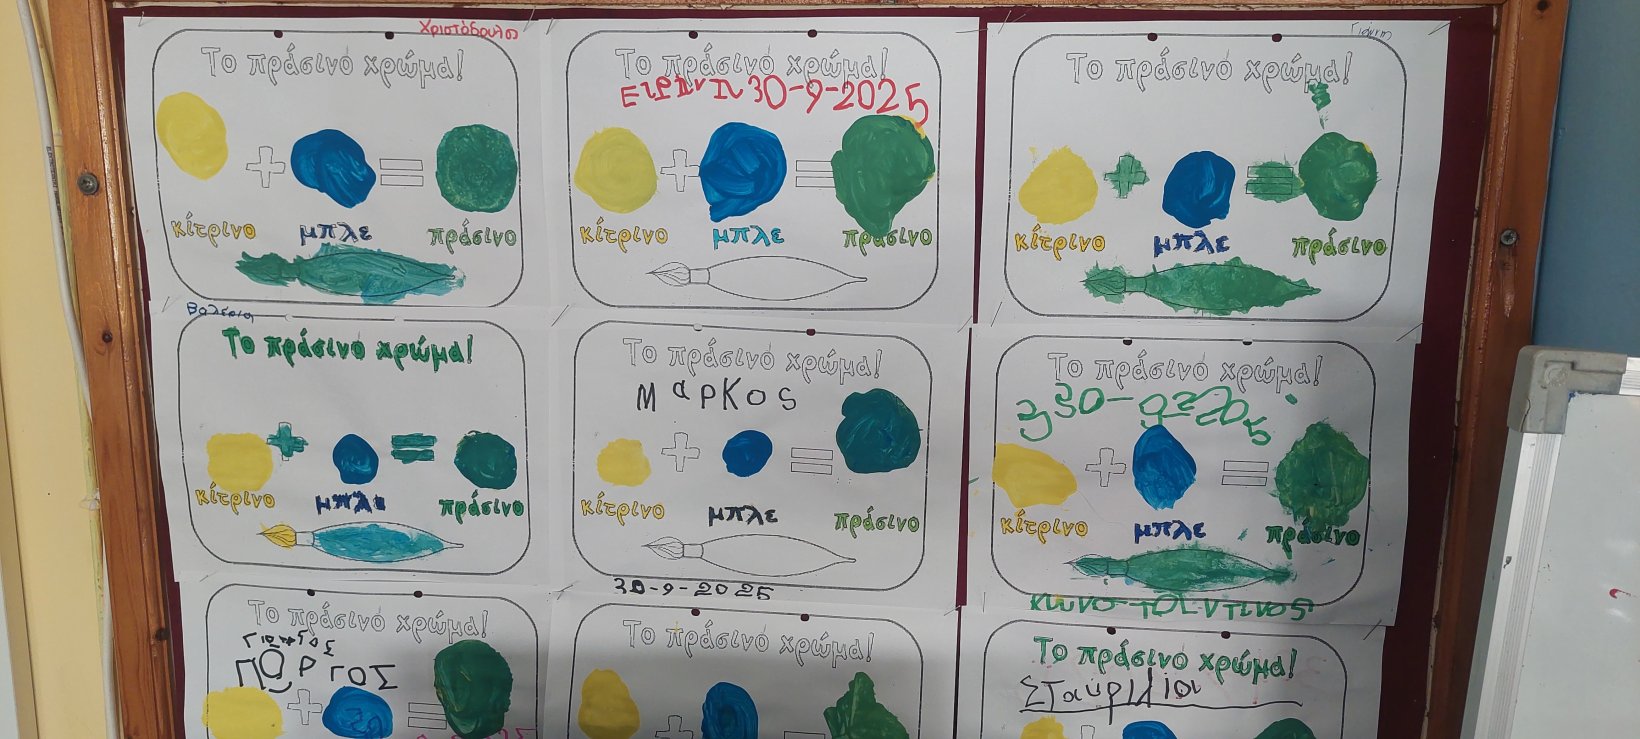 Χριστόδουλος
Το πράσινό χρώμα!
κίτρινο
μπλε
πράσινο
Το πράσινό χρώμα!
ΕΙΡΗΝΗ 30-9-2025
κίτρινο
μπλε
πράσινο
Γιάννη
Το πράσινό χρώμα!
κίτρινο
μπλε
πράσινο
Βαλέρια
Το πράσινό χρώμα!
κίτρινο
μπλε
πράσινο
Το πράσινό χρώμα!
ΜαρΚος
κίτρινο
μπλε
πράσινο
30-9-2025
Το πράσινό χρώμα!
κίτρινο
μπλε
πράσινο
Το πράσινό χρώμα!
Το πράσινό χρώμα!
Το πράσινό χρώμα!